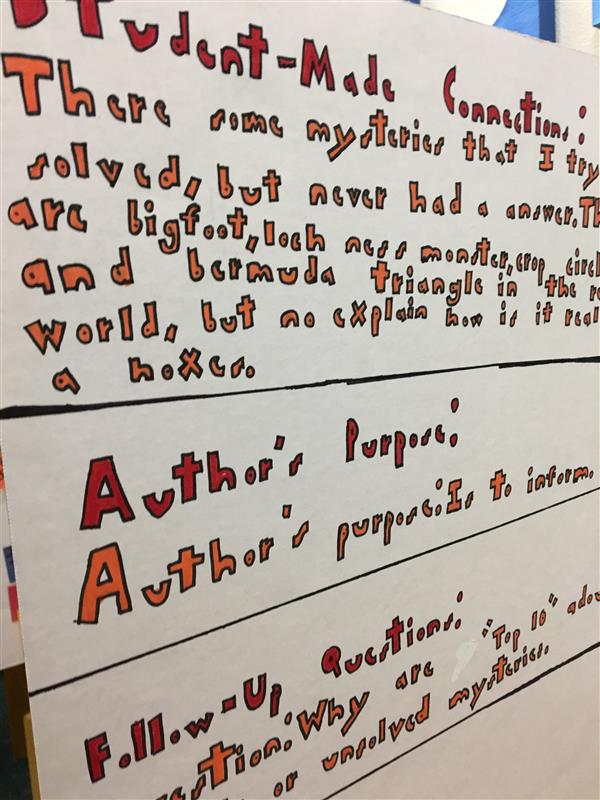 Student-Made Connections:
There some mysteries that I try
solved, but never had a answer. Th
are bigfoot, loch ness monster, crop circl
and bermuda triangle in the re
world, but no explain how is it real
a hoxes.
Author's Purpose:
Author's purpose: Is to inform.
Follow-Up Questions:
estion: Why are "Top 10" abou
or unsolved mysteries.